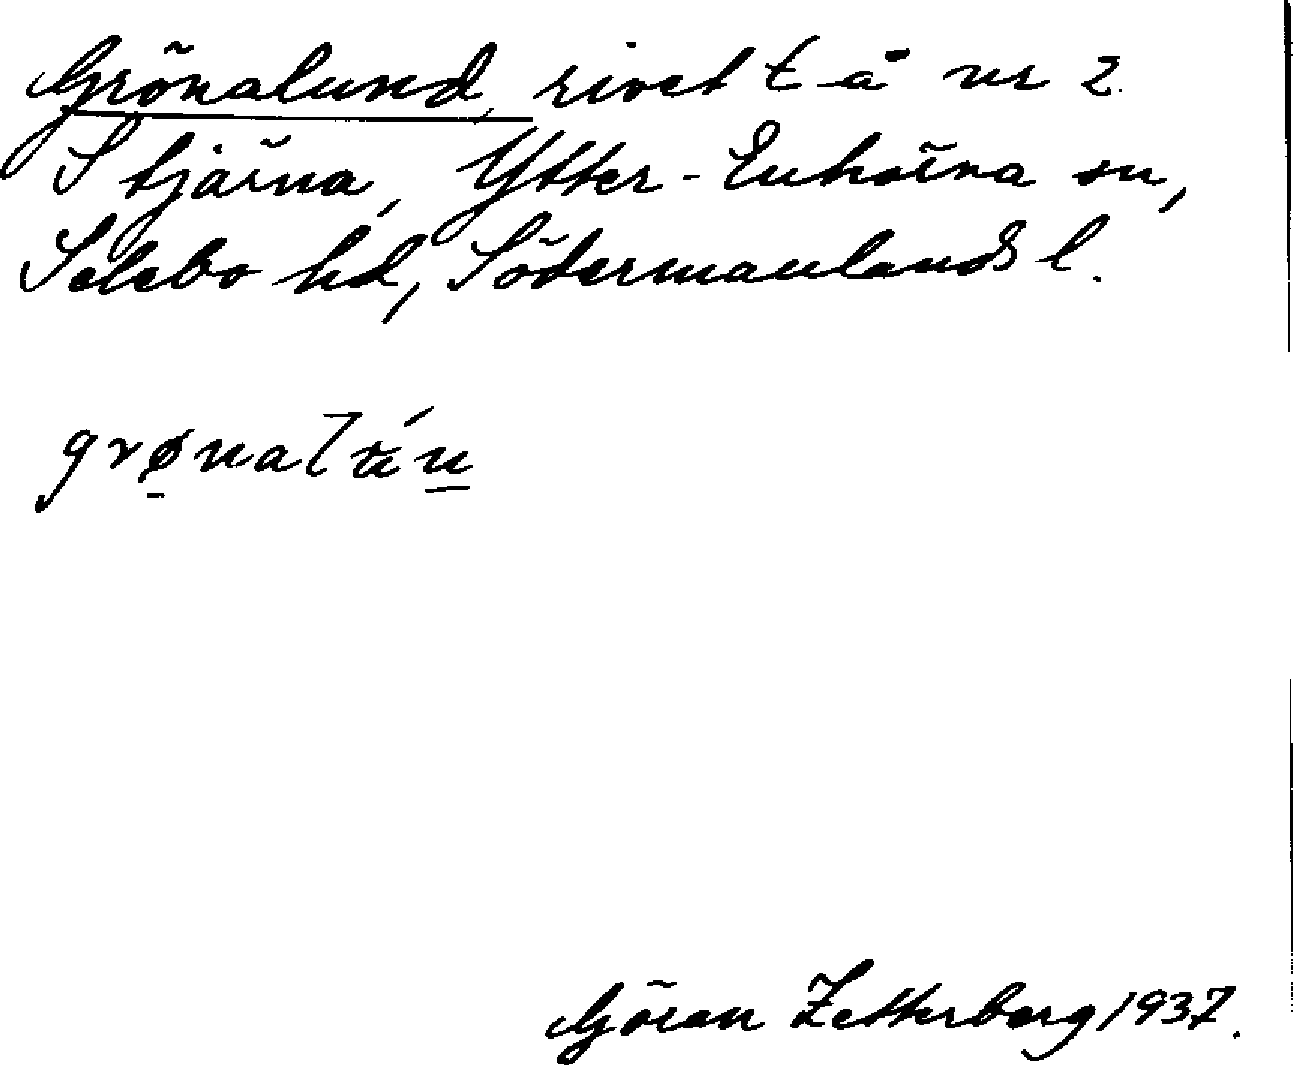 Grönalund, rivet t å nr 2
Stjärna, Ytter-Enhörna sn,
Selebo hd, Södermanlands l.
Göran Zetterberg 1937.